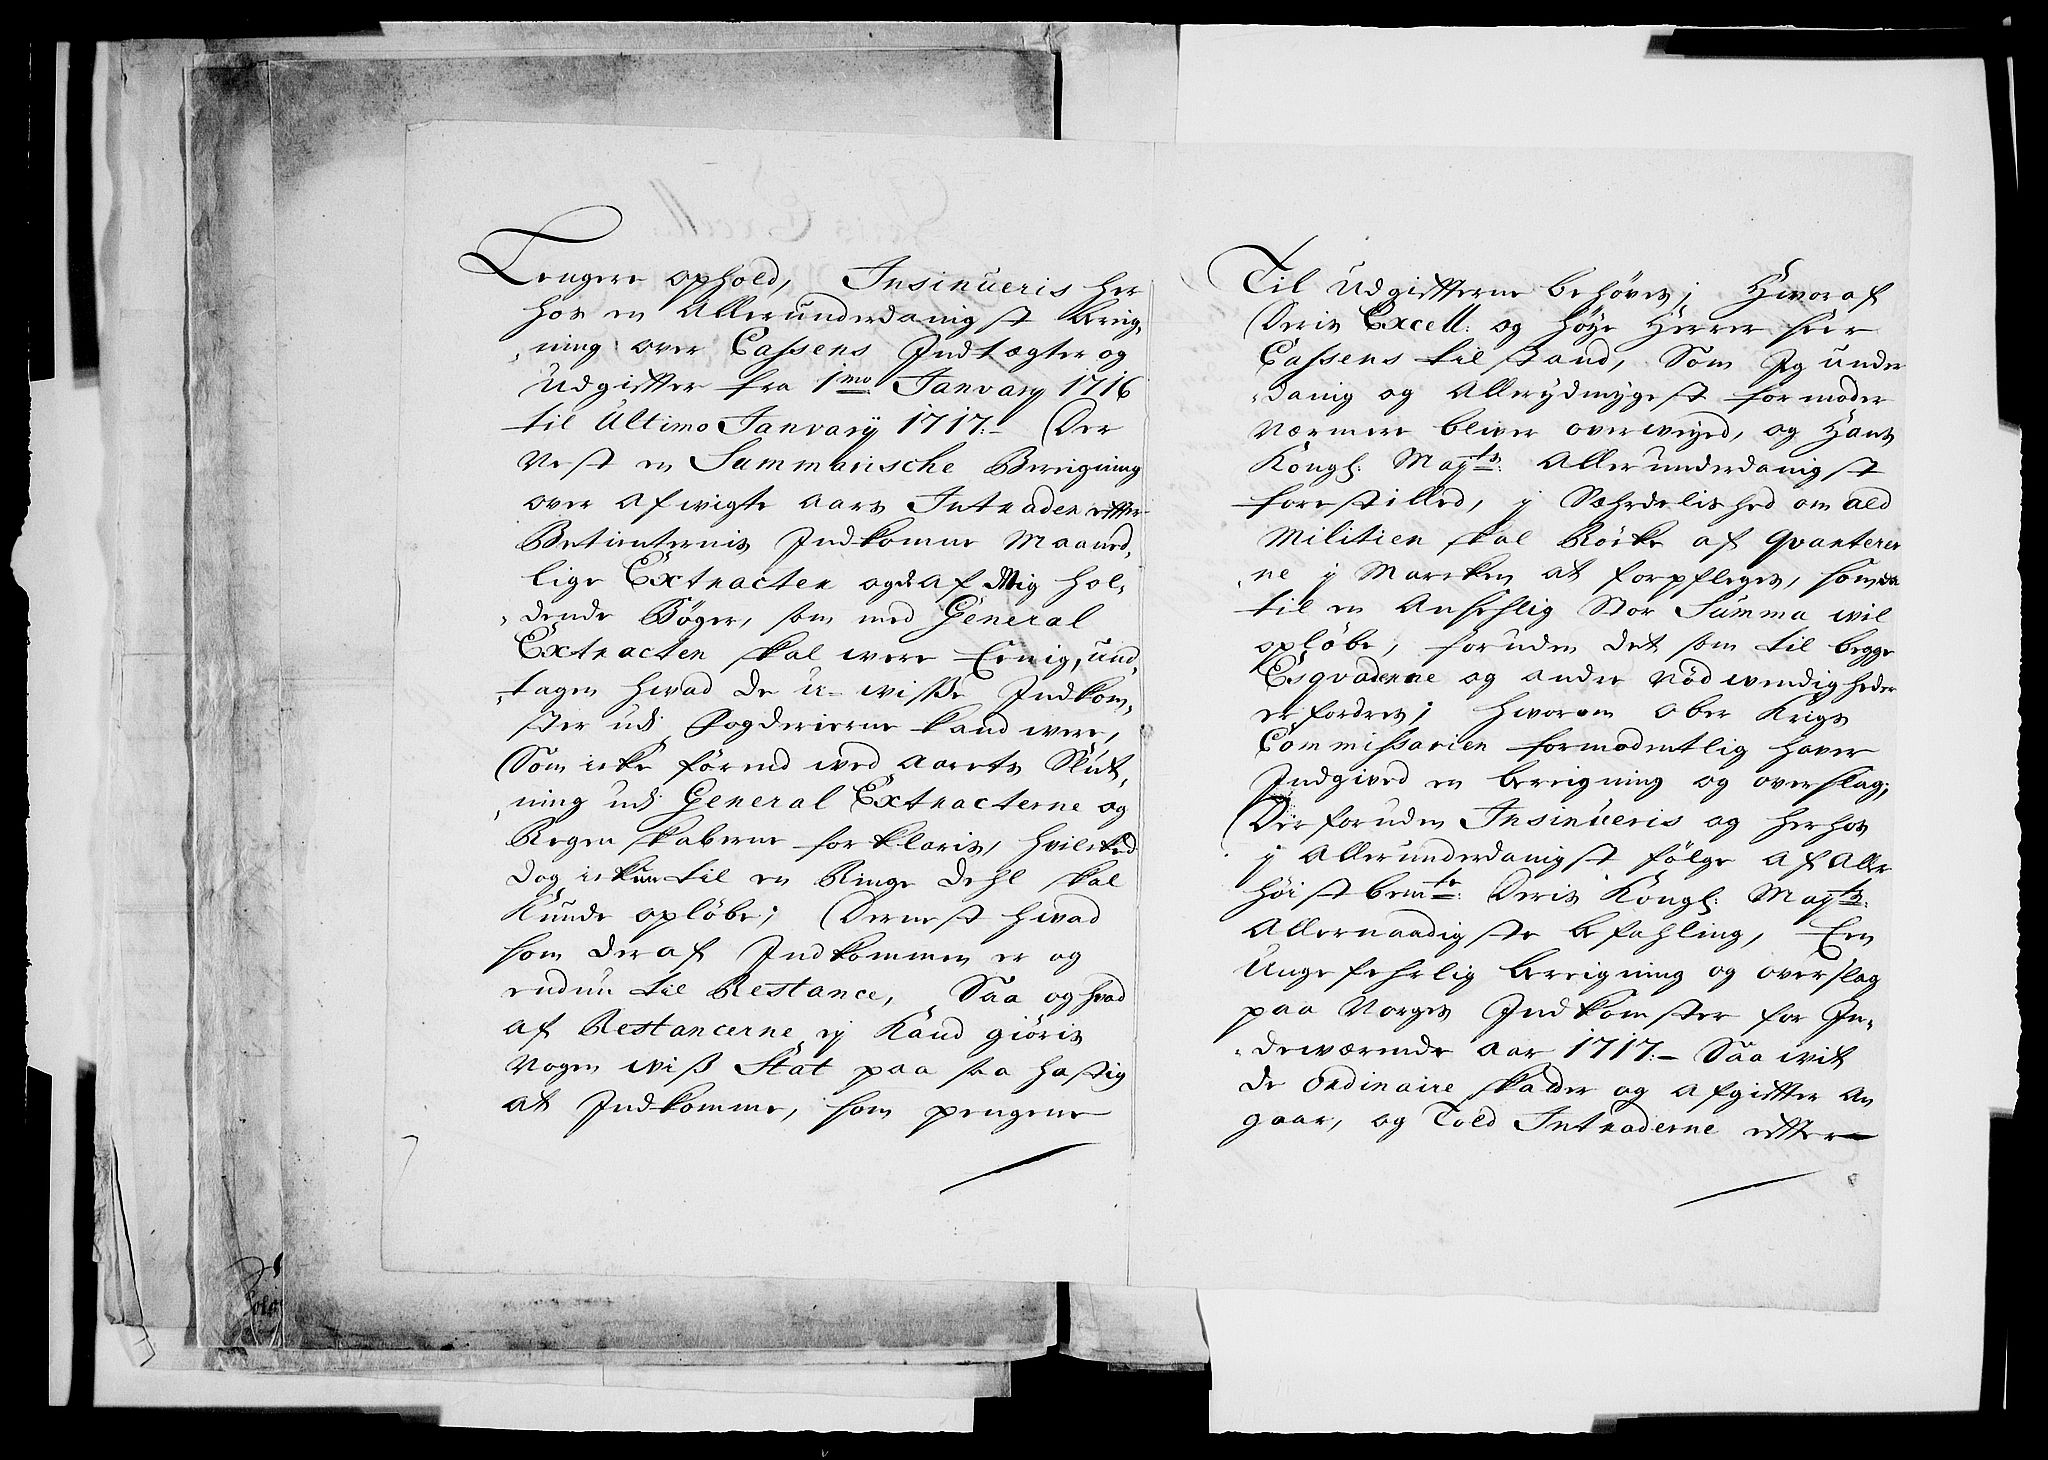 Lengere ophold, Insinueris her
hos en Allerunderdanigst Bereig,
„ning over Cassens Indtægter og
Udgifter fra 1mo January 1716
til Ultimo January 1717:– Der
Nest en Summarische Bereigning
over afwigte aars Intrader efter
Betienternis Indkomne Maaned,
lige Extracter og de af Mig hol,
„dende Bøger, som med General
Extracten skal were Eenig, und,
„tagen hvad de u-wisse Indkom,
ster udj Fogderierne kand were,
Som icke förend wed aarets Slut,
„ning udj General Extracterne og
Regenskaberne forklaris, hvilcked
dog ickun til en Ringe dehl skal
Kunde opløbe; Dernest hvad
som deraf Indkommen er og
endnu til Restance, Saa og hvad
af Restancerne ej Kand giöris
Nogen wiß Stat paa saa hastig
at Indkomme, som pengene
Til Udgifterne behöves; Hworaf
Deris Excell: og höye Herrer seer
Cassens tilstand, Som Jeg under
„danig og Allerydmygest formoder
Nærmere bliver overweyed, og Hans
Kongl: Mayts: Allerunderdanigst
forestilled, j Sæhrdelished om ald
Militien skal Röcke af Qvarterer
„ne j Marcken at forpfleges, som da
til en Ansehlig Stor Summa wil
opløbe, foruden det som til begge
Esqvaderne og andre Nödwendigheder
erfordres; hworom Ober Krigs
Commissarien formodentlig haver
Indgived en bereigning og overslag;
Der foruden Insinueris og herhos
j Allerunderdanigst følge af Aller
höistbemte: Deris Kongl: Mayts:
Allernaadigste befahling, Een
Ungefehrlig bereigning og overslag
paa Norges Indkomster for In„
„dewærende aar 1717.– Saa wit
de ordinaire skatter og afgifter an
gaar, og Told Intraderne efter